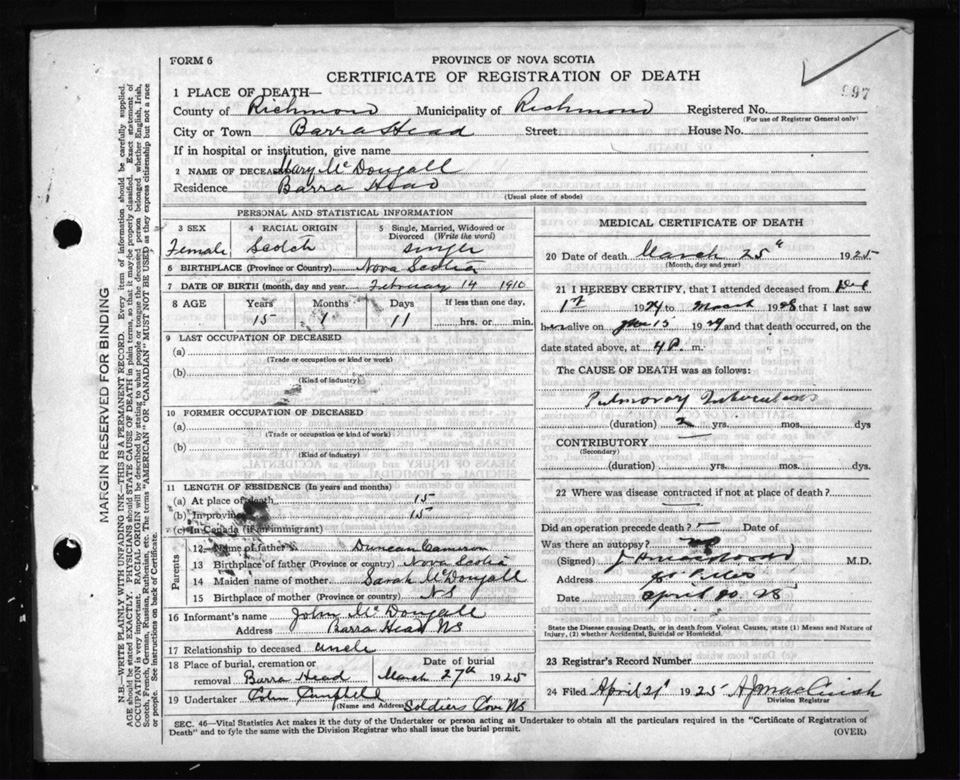 FORM 6
PROVINCE OF NOVA SCOTIA
CERTIFICATE OF REGISTRATION OF DEATH
997
1 PLACE OF DEATH—
County of Richmond Municipality of Richmond Registered No.
(For use of Registrar General only)
City or Town Barra Head Street House No.
If in hospital or institution, give name
2 NAME OF DECEASED Mary McDougall
Residence Barra Head
(Usual place of abode)
PERSONAL AND STATISTICAL INFORMATION
3 SEX 4 RACIAL ORIGIN 5 Single, Married, Widowed or
Divorced (Write the word)
Female Scotch Single
6 BIRTHPLACE (Province or Country) Nova Scotia
7 DATE OF BIRTH (month, day and year) February 14 1910
8 AGE Years Months Days If less than one day,
15 1 11 hrs. or min.
9 LAST OCCUPATION OF DECEASED
(a)
(Trade or occupation or kind or work)
(b)
(Kind of industry)
10 FORMER OCCUPATION OF DECEASED
(a)
(Trade or occupation or kind of work)
(b)
(Kind of industry)
11 LENGTH OF RESIDENCE (In years and months)
(a) At place of death 15
(b) In province 15
(c) In Canada (if an immigrant)
Parents
12 Name of father Duncan Cameron
13 Birthplace of father (Province or country) Nova Scotia
14 Maiden name of mother Sarah McDougall
15 Birthplace of mother (Province or country) NS
16 Informant's name John McDougall
Address Barra Head NS
17 Relationship to deceased uncle
18 Place of burial, cremation or Date of burial
removal Barra Head March 27th 1925
19 Undertaker Campbell
(Name and Address) Soldiers Cove NS
MEDICAL CERTIFICATE OF DEATH
20 Date of death March 25 1925
(Month, day and year)
21 I HEREBY CERTIFY, that I attended deceased from Dec
1st 1924 to March 192 that I last saw
her alive on 15 192 and that death occurred, on
date stated above, at 4 P. m.
The CAUSE OF DEATH was as follows:
Pulmonary Tuberculosis
(duration) 2 yrs. mos. dys
CONTRIBUTORY
(Secondary)
(duration) yrs. mos. dys.
22 Where was disease contracted if not at place of death?
Did an operation precede death? — Date of
Was there an autopsy? no
(Signed) M.D.
Address St Peters
Date April 20
State the Disease causing Death, or in death from Violent Causes, state (1) Means and Nature of
Injury, (2) whether Accidental, Suicidal or Homicidal.
23 Registrar's Record Number
24 Filed April 21 1925
Division Registrar
SEC. 46—Vital Statistics Act makes it the duty of the Undertaker or person acting as Undertaker to obtain all the particulars required in the "Certificate of Registration of
Death" and to fyle the same with the Division Registrar who shall issue the burial permit. (OVER)
MARGIN RESERVED FOR BINDING
N.B.—WRITE PLAINLY WITH UNFADING INK—THIS IS A PERMANENT RECORD. Every item of information should be carefully supplied.
AGE should be stated EXACTLY. PHYSICIANS should STATE CAUSE OF DEATH in plain terms, so that it may be properly classified. Exact statement of
OCCUPATION is very important. RACIAL ORIGIN will be described by stating to what people or tongue the deceased person belonged whether English, Irish,
Scotch, French, German, Russian, Ruthenian, etc. The terms "AMERICAN" OR "CANADIAN" MUST NOT BE USED as they express citizenship but not a race
or people. See instructions on back of Certificate.